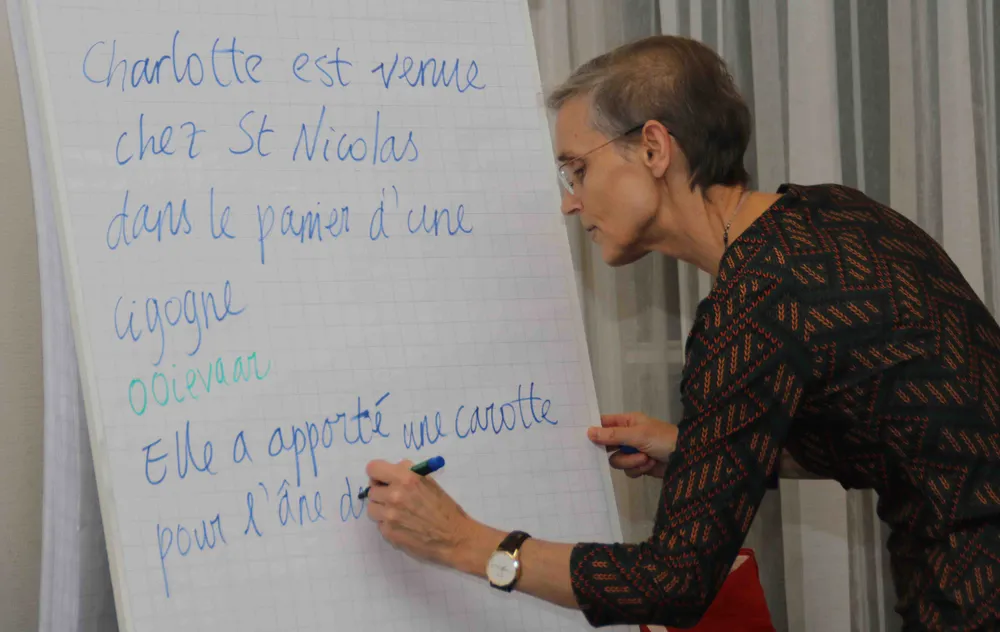 Charlotte est venue
chez St Nicolas
dans le panier d'une
cigogne
ooievaar
Elle a apporté une carotte
pour l'âne d